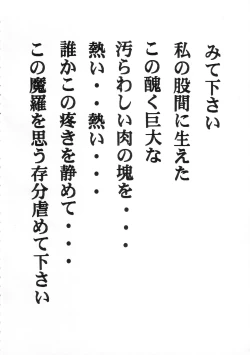 みて下さい
私の股間に生えた
この醜く巨大な
汚らわしい肉の塊を・・・
熱い・・熱い・・・
誰かこの疼きを静めて・・・
この魔羅を思う存分虐めて下さい